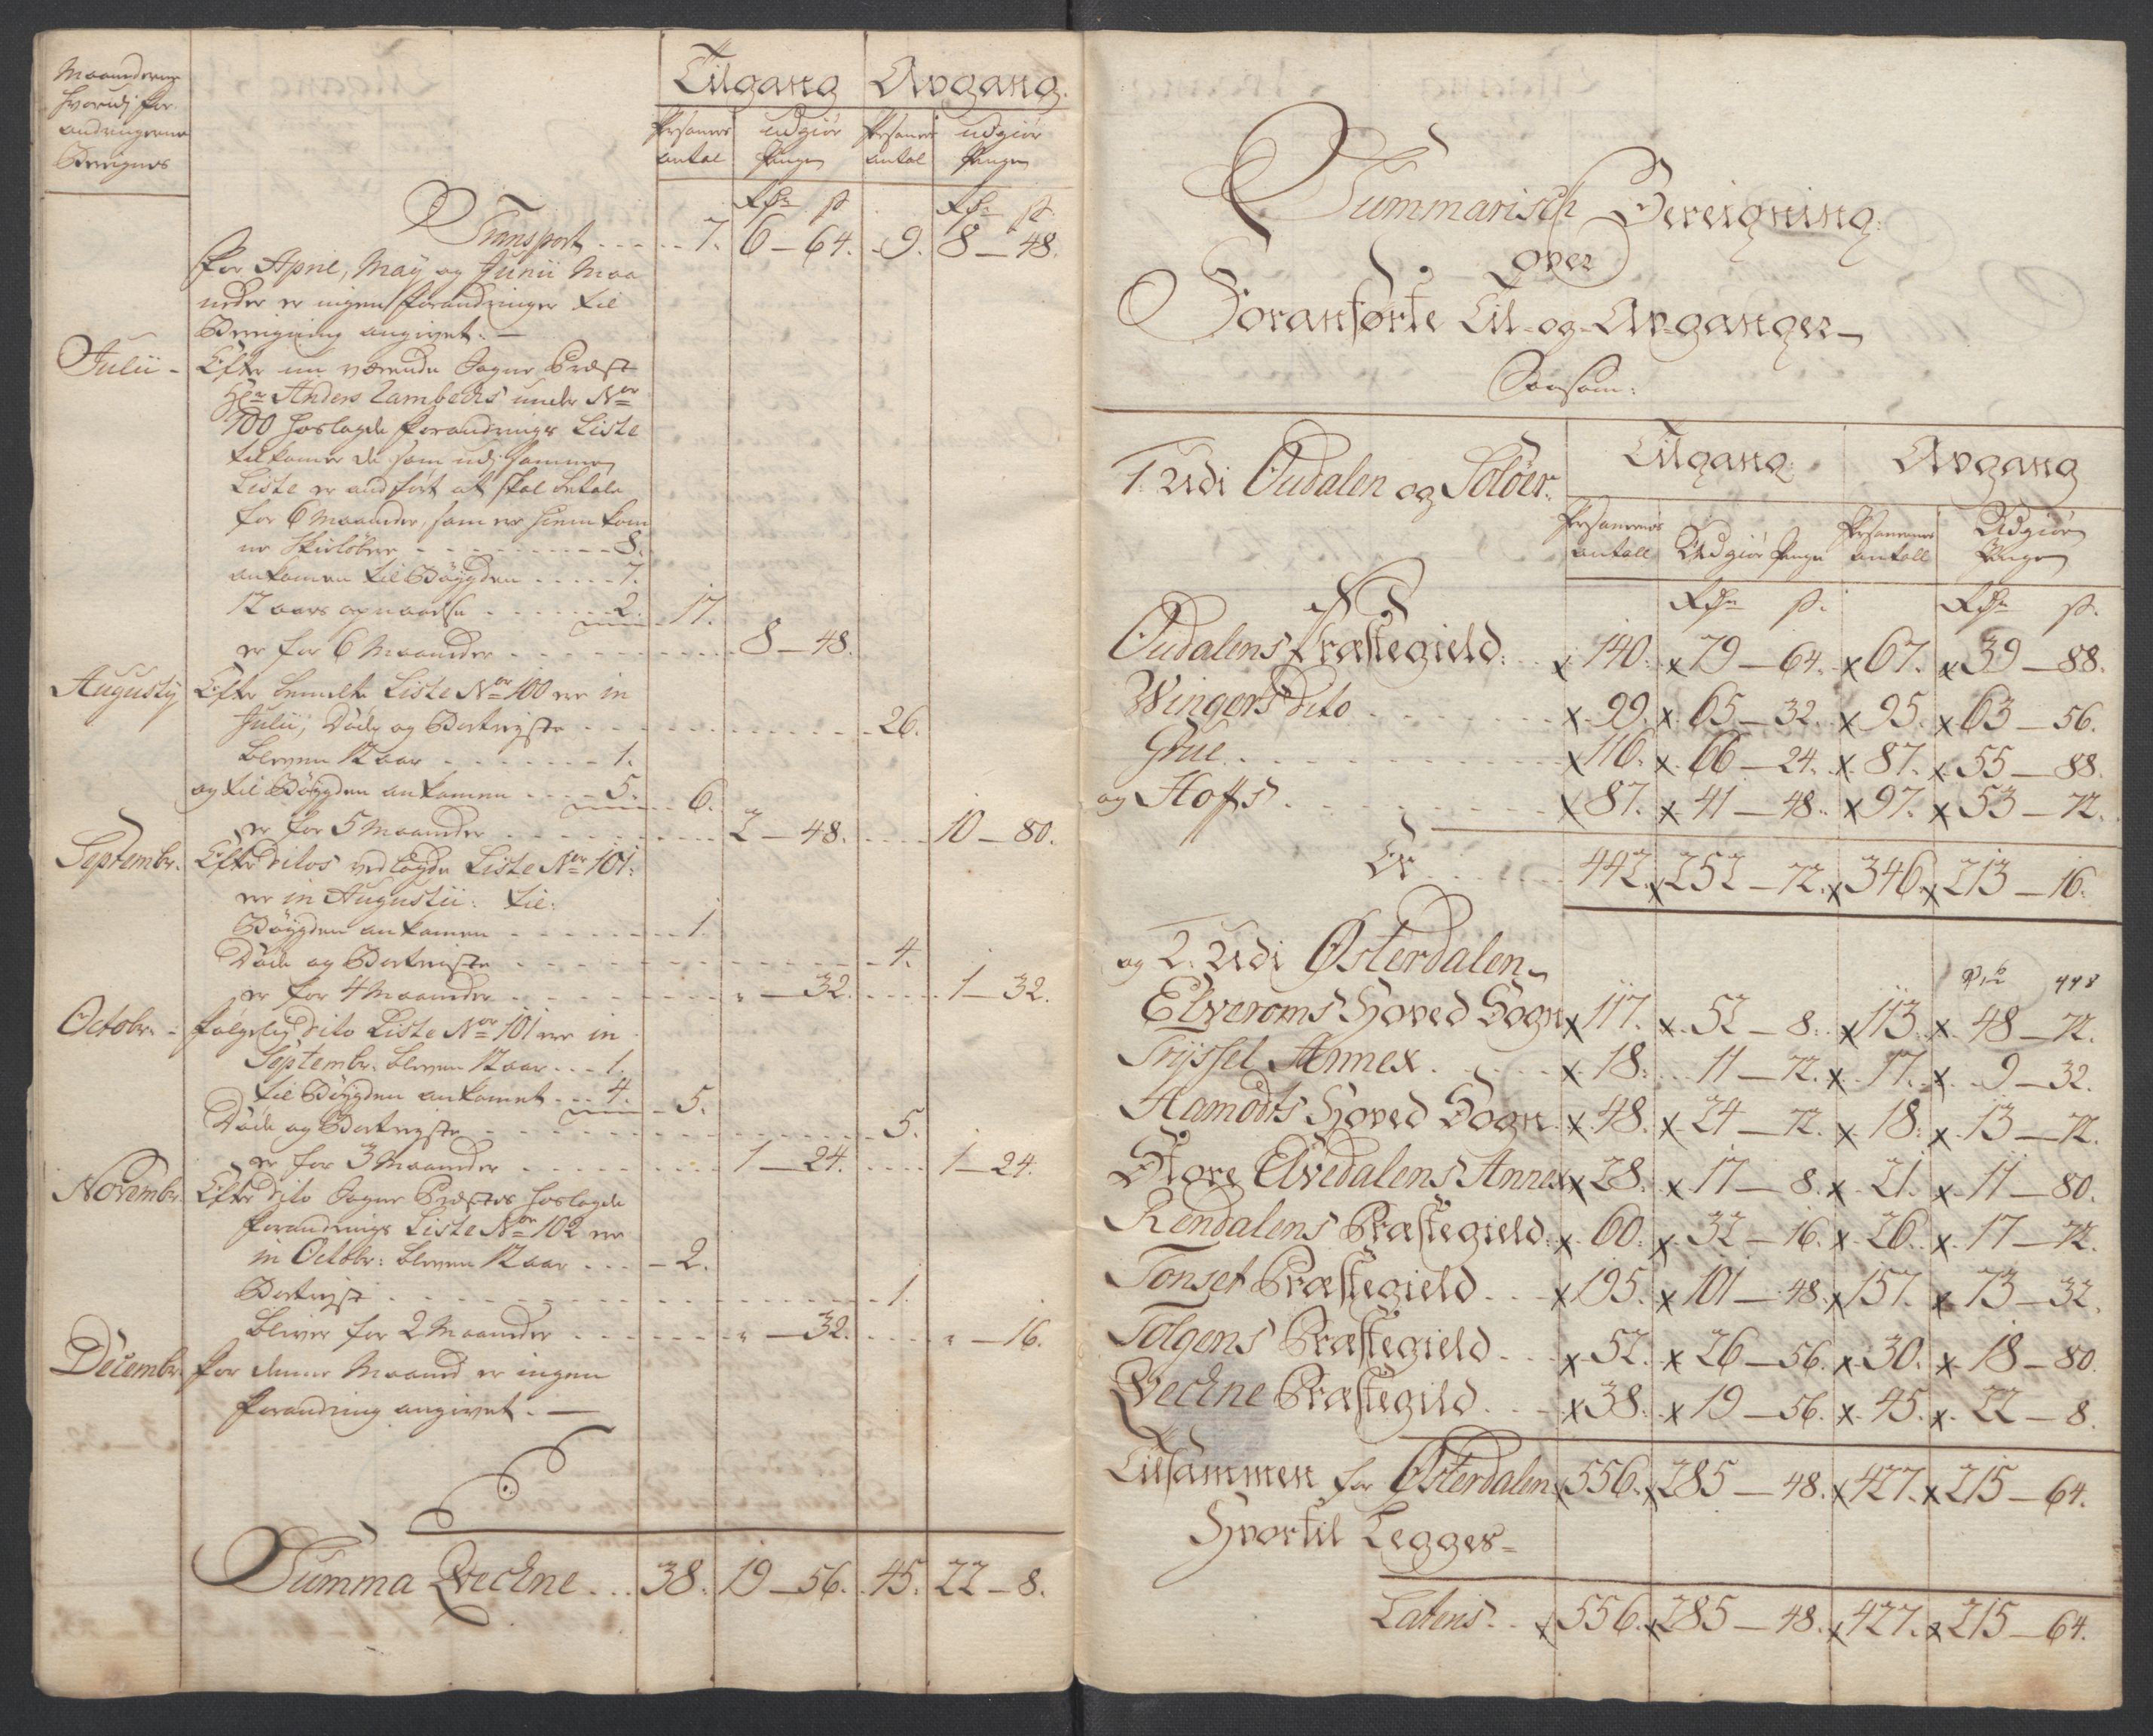 Maanederne
hvorudj for-
andringerne
Bereignes
Tilgang Avgang.
Persones antal udgiør Penge Persones antal udgiør Penge
Rdr ß Rdr ß
Transport . . . . 7. 6 – 64. 9. 8 – 48.
for April, Maÿ og Junii Maa
neder er ingen forandringer til
Bereigning angivet. –
Julii – Efter nu værende Sogne Præst
Hr Anders Lambechs under No
100 hoslagde forandrings Liste
tilkomer de som udj samme
Liste er andført at skal betale
for 6 Maaneder, som er hiem kom
ne Skiløbere . . . . . . 8.
ankomen til Bøÿgden . . . . . 7.
12 aars opnaaelse . . . . . . 2. 17.
er for 6 Maaneder . . . . . . . 8 – 48.
Augustÿ Efter bemelte Liste No 100 ere in
Julii, Døde og Bortreiste . . . . . . . 26.
bleven 12 aar . . . . . . 1.
og til Bøÿgden ankomen . . . . 5. 6.
er for 5 Maaneder . . . . . . 2 – 48. . . . 10 – 80.
Septembr. Efter ditos vedlagde Liste No 101.
ere in Augustii: til:
Bøÿgden ankomen . . . . . . . 1.
Døde og Bortreiste . . . . . . . 4.
er for 4 Maaneder . . . . . . " – 32. . . . 1 – 32.
Octobr. – følgelig dito Liste No 101 ere in
Septembr. bleven 12 aar . . . 1.
til Bøÿgden ankomet . . . 4. 5.
Døde og Bortreiste . . . . . . . 5.
er for 3 Maaneder . . . . . . 1 – 24. . . . 1 – 24.
Novembr. Efter dito Sogne Præstes hoslagde
forandrings Liste No 102 ere
in Octobr: bleven 12 aar . . . – 2.
Bortreist . . . . . . . . . 1.
bliver for 2 Maaneder . . . . . . " – 32. . . . " – 16.
Decembr. for denne Maaned er ingen
forandring angivet. –
Summa Qvechne . . . 38. 19 – 56. 45. 22 – 8.
Summarisch Bereigning
over
Foranførte Til- og Avganger –
Saasom:
Tilgang Avgang
1. Udi Oudalen og Soløer.
Personernes antall Udgiør Penge Personernes antall Udgiør Penge
Rdr ß. Rdr ß.
Oudalens Præstegield. . . x 140. x 79 – 64. x 67. x 39 – 88.
Wingers dito . . . . . . x 99. x 65 – 32. x 95. x 63 – 56.
Grue . . . . . . . x 116. x 66 – 24. x 87. x 55 – 88.
og Hoffs . . . . . . . x 87. x 41 – 48. x 97. x 53 – 72.
Er . . . . . 442. x 252 – 72. x 346. x 213 – 16.
og 2. Udi Østerdalen –
448
Elveroms Hoved Sogn x 117. x 52 – 8. x 113. x 48 – 72.
Trÿssel Annex . . . . x 18. . . 11 – 72. x 17. x 9 – 32.
Aamodts Hoved Sogn . x 48. x 24 – 72. x 18. x 13 – 72.
Store Elvedalens Annex x 28. x 17 – 8. x 21. x 11 – 80.
Rendalens Præstegield. x 60. x 32 – 16. x 26. x 17 – 72.
Tønset Præstegield . . . x 195. x 101 – 48. x 157. x 73 – 32.
Tolgens Præstegield . . . x 52. x 26 – 56. x 30. x 18 – 80.
Qvechne Præstegild . . . x 38. x 19 – 56. x 45. x 22 – 8.
Tilsammen for Østerdalen x 556. x 285 – 48. x 427. x 215 – 64.
Hvortil Legges –
Lateris . . x 556. x 285 – 48. x 427. x 215 – 64.